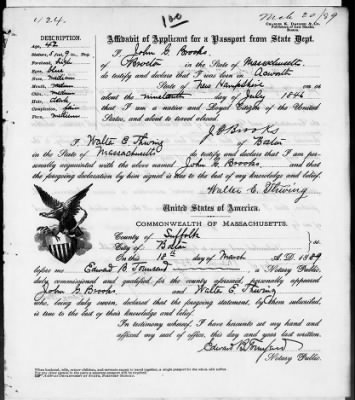 1124.
100
Mch 20/89
DESCRIPTION.
Affidavit of Applicant for a Passport from State Dept.
I, John G Brooks,
of Newton in the State of Massachusetts
do testify and declare that I was born in Acworth
State of New Hampshire on
about the nineteenth day of July 1846
that I am a native and Loyal Citizen of the United
States, and about to travel abroad.
J G Brooks
I, Walter E. Thwing of Boston
in the State of Massachusetts do testify and declare that I am personally
acquainted with the above named John G. Brooks, and that
the foregoing declaration by him signed is true to the best of my knowledge and belief.
Walter E. Thwing
United States of America.
COMMONWEALTH OF MASSACHUSETTS.
County of Suffolk
City of Boston ss.
On this 18th day of March A.D. 1889
before me Edward B Townsend a Notary Public,
duly commissioned and qualified for the county aforesaid, personally appeared
John G. Brooks and Walter E. Thwing
who, being duly sworn, declared that the foregoing statement, by them subscribed,
is true to the best of their knowledge and belief.
In testimony whereof, I have hereunto set my hand and
affixed my seal of office, this day and year last written.
Edward B Townsend
Notary Public.